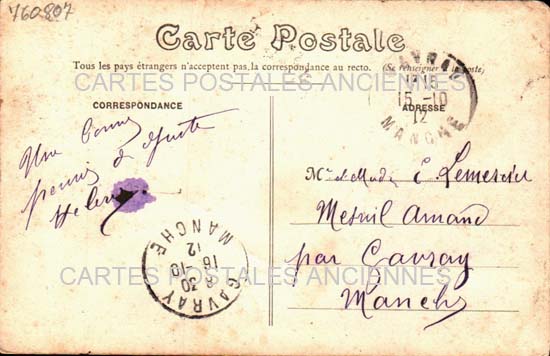 760807
Carte Postale
Tous les pays étrangers n'acceptent pas la correspondance au recto. (Se renseigner à la poste)
CARTES POSTALES ANCIENNES
CORRESPONDANCE
ADRESSE
GAVRAY
15-10
12
MANCHE
Une bonne
pensée d
Mr et Mada E. Lemercier
Mesnil Amand
par Gavray
Manche
GAVRAY
8 30
16-10
12
MANCHE
CARTES POSTALES ANCIENNES